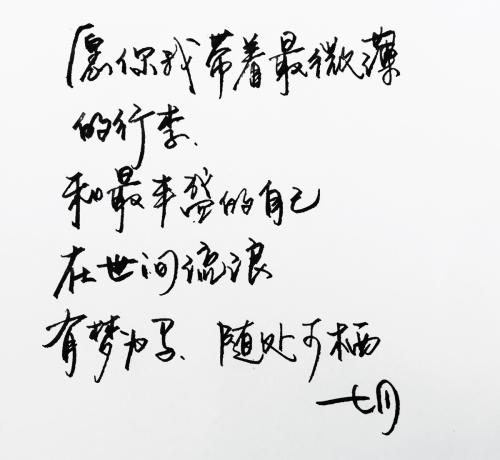 愿你我带着最微薄
的行李、
和最丰盛的自己
在世间流浪
有梦为马、随处可栖
七月